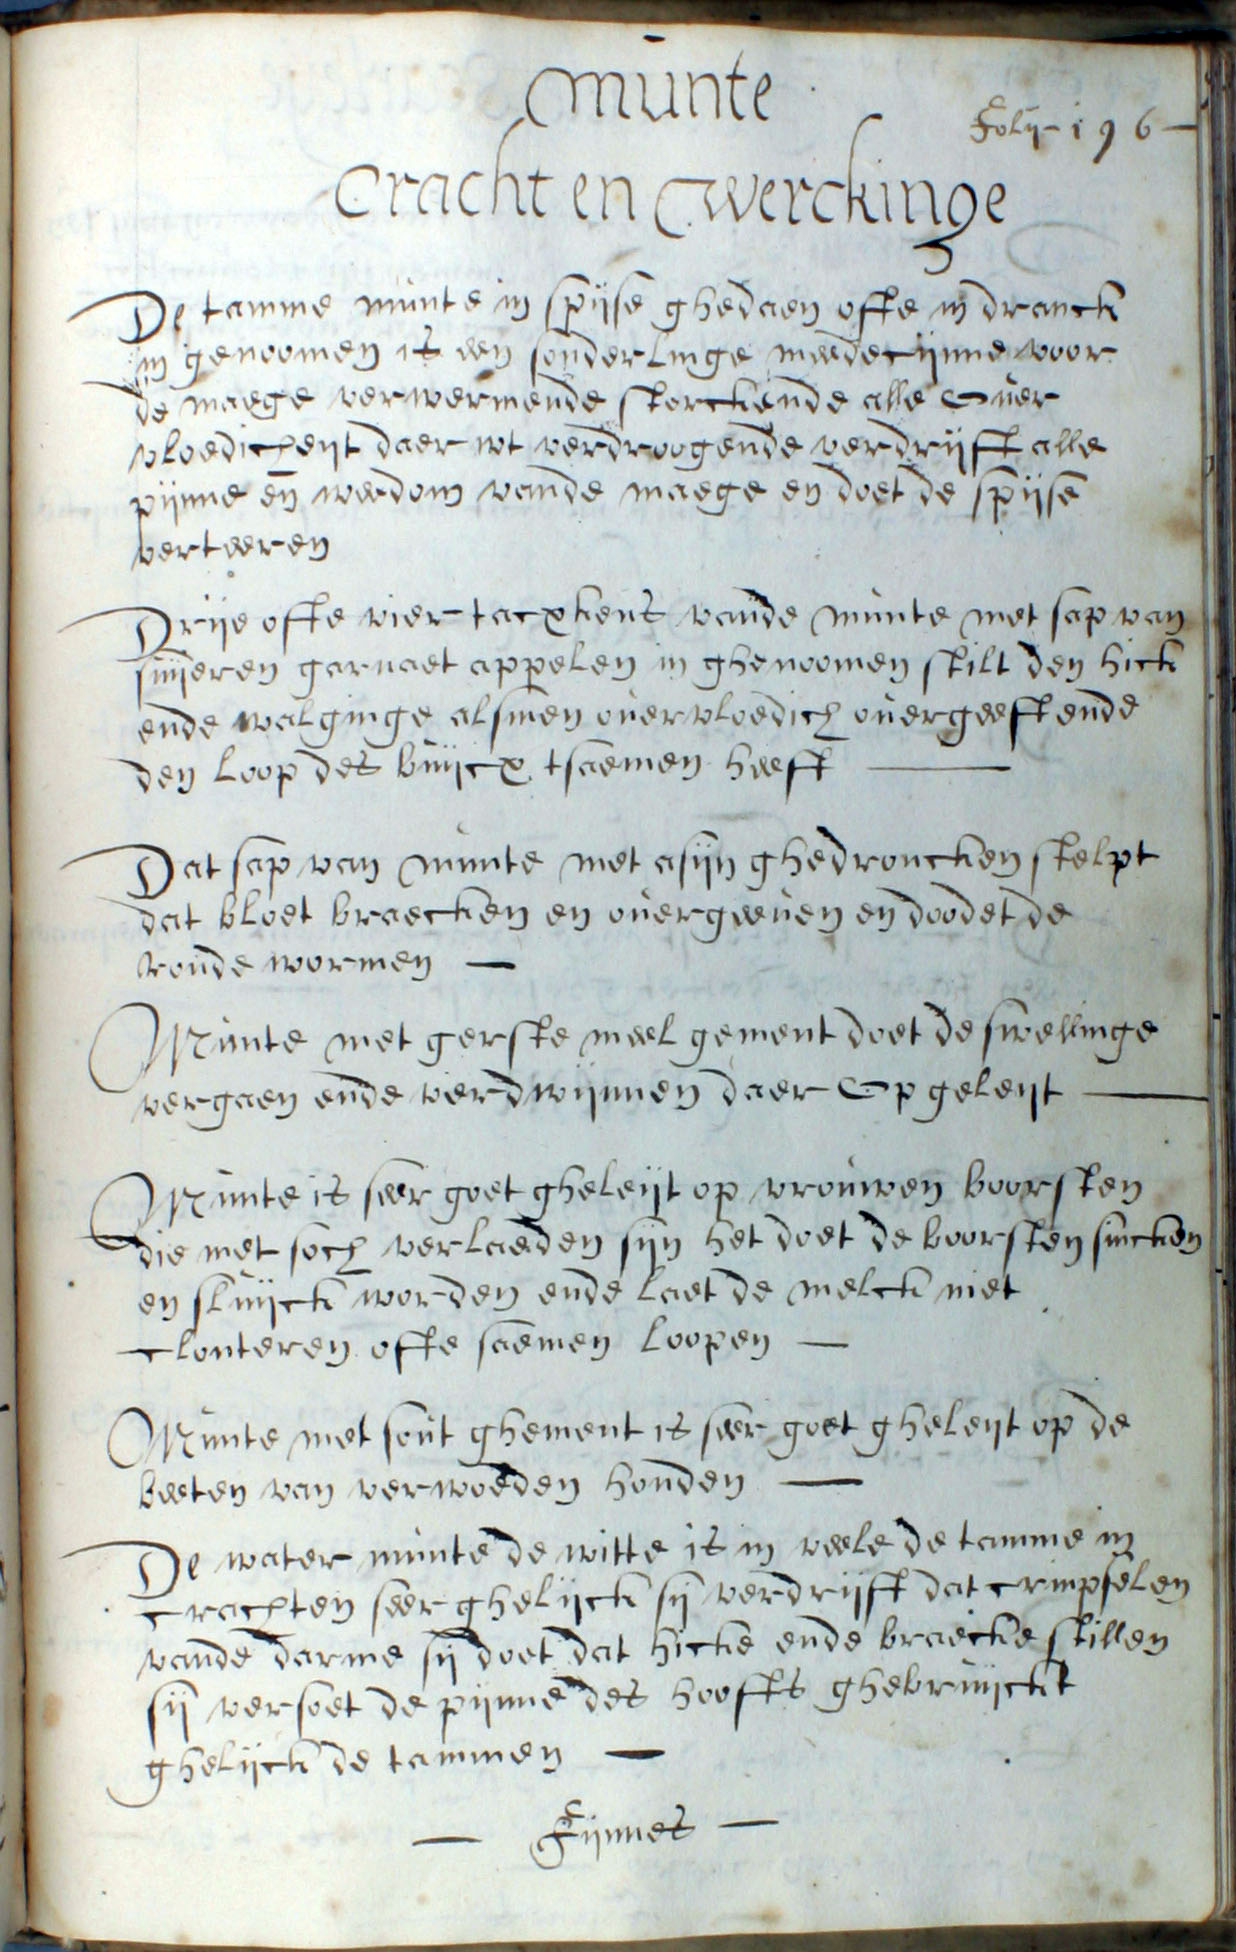 Munte
Folÿ 196
Cracht en Werckinge
De tamme munte in spijse ghedaen ofte in dranck
in genoomen is een sonderlinge meedecijnne voor
de maege verwermende sterckende alle Over
vloedicheijt daer wt verdroogende verdrijft alle
pijnne en weedom vande maege en doet de spijse
verteeren
Drije ofte vier tacxkens vande munte met sap van
suijeren garnaet appelen in ghenoomen stilt den hick
ende walginge alsmen overvloedich overgeeft ende
den loop des buijcx tsaemen heeft
Dat sap van munte met asijn ghedroncken stelpt
dat bloet braecken en overgeeven en doodet de
ronde wormen
Munte met gerste meel gement doet de swellinge
vergaen ende verdwijnnen daer Op geleijt
Munte is seer goet gheleijt op vrouwen boorsten
die met soch verlaeden sijn het doet de boorsten sincken
en sluijck worden ende laet de melck niet
clonteren ofte saemen loopen
Munte met sout ghement is seer goet gheleijt op de
beeten van verwoeden honden
De water munte de witte is in veele de tamme in
crachten seer ghelijck sij verdrijft dat crimpselen
vande darme sij doet dat hicke ende braecke stillen
sij versoet de pijnne des hoofts ghebruijckt
ghelijck de tammen
Fijnnes